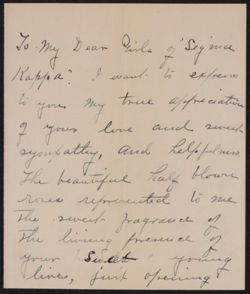 To My Dear Girls of "Sigma
Kappa". I want to express
to you my true appreciation
of your love and sweet
sympathy, and helpfulness.
The beautiful half blown
roses represented to me
the sweet fragrance of
the living presence of
your sweet young
lives, just opening